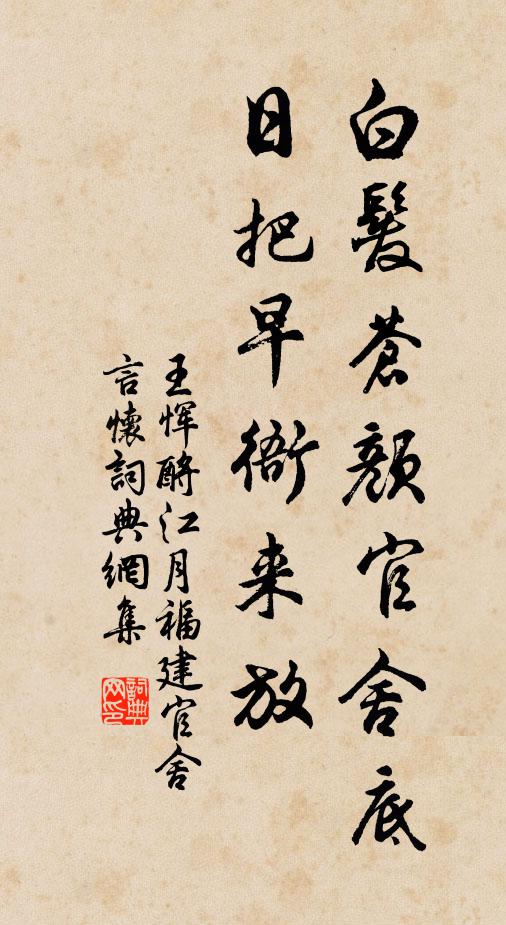 白髮蒼顏官舍底
日把早衙来放
王恽酹江月福建官舍
言懷詞典網集
詞典
网印